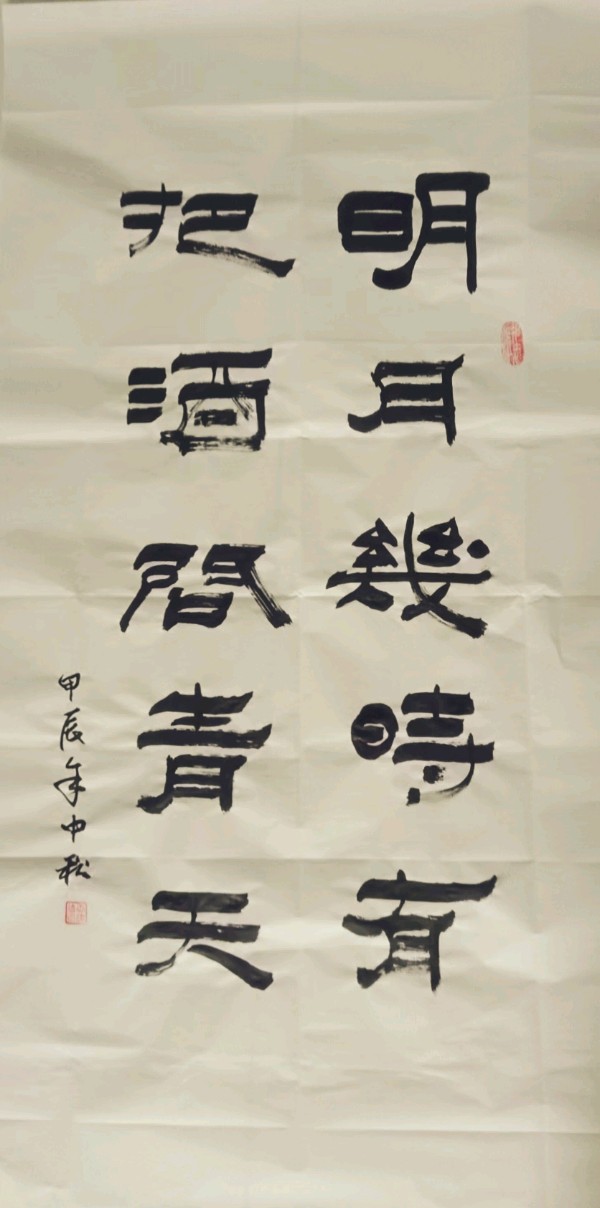 明月幾時有
把酒問青天
甲辰年中秋